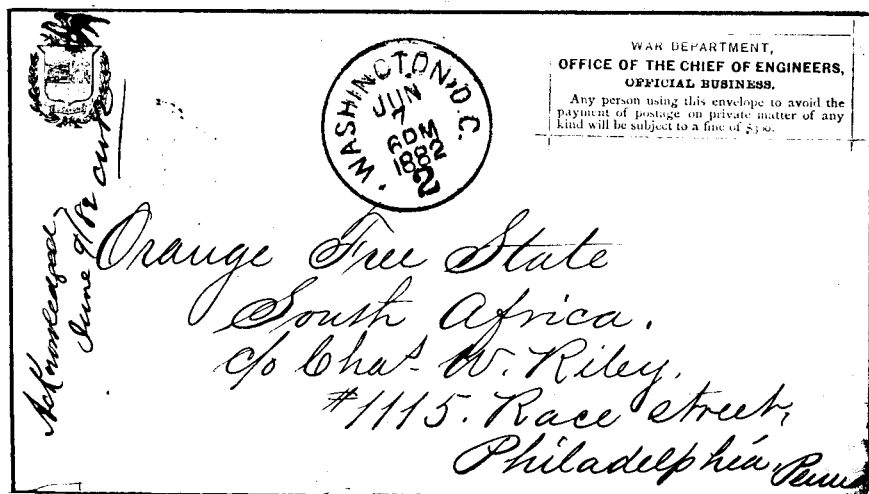 WAR DEPARTMENT,
OFFICE OF THE CHIEF OF ENGINEERS,
OFFICIAL BUSINESS.
Any person using this envelope to avoid the
payment of postage on private matter of any
kind will be subject to a fine of $300.
WASHINGTON, D.C.
JUN
7
6PM
1882
2
Acknowledged
June 9/82 CWR
Orange Free State
South Africa.
c/o Chas. W. Riley.
#1115. Race street,
Philadelphia, Penn